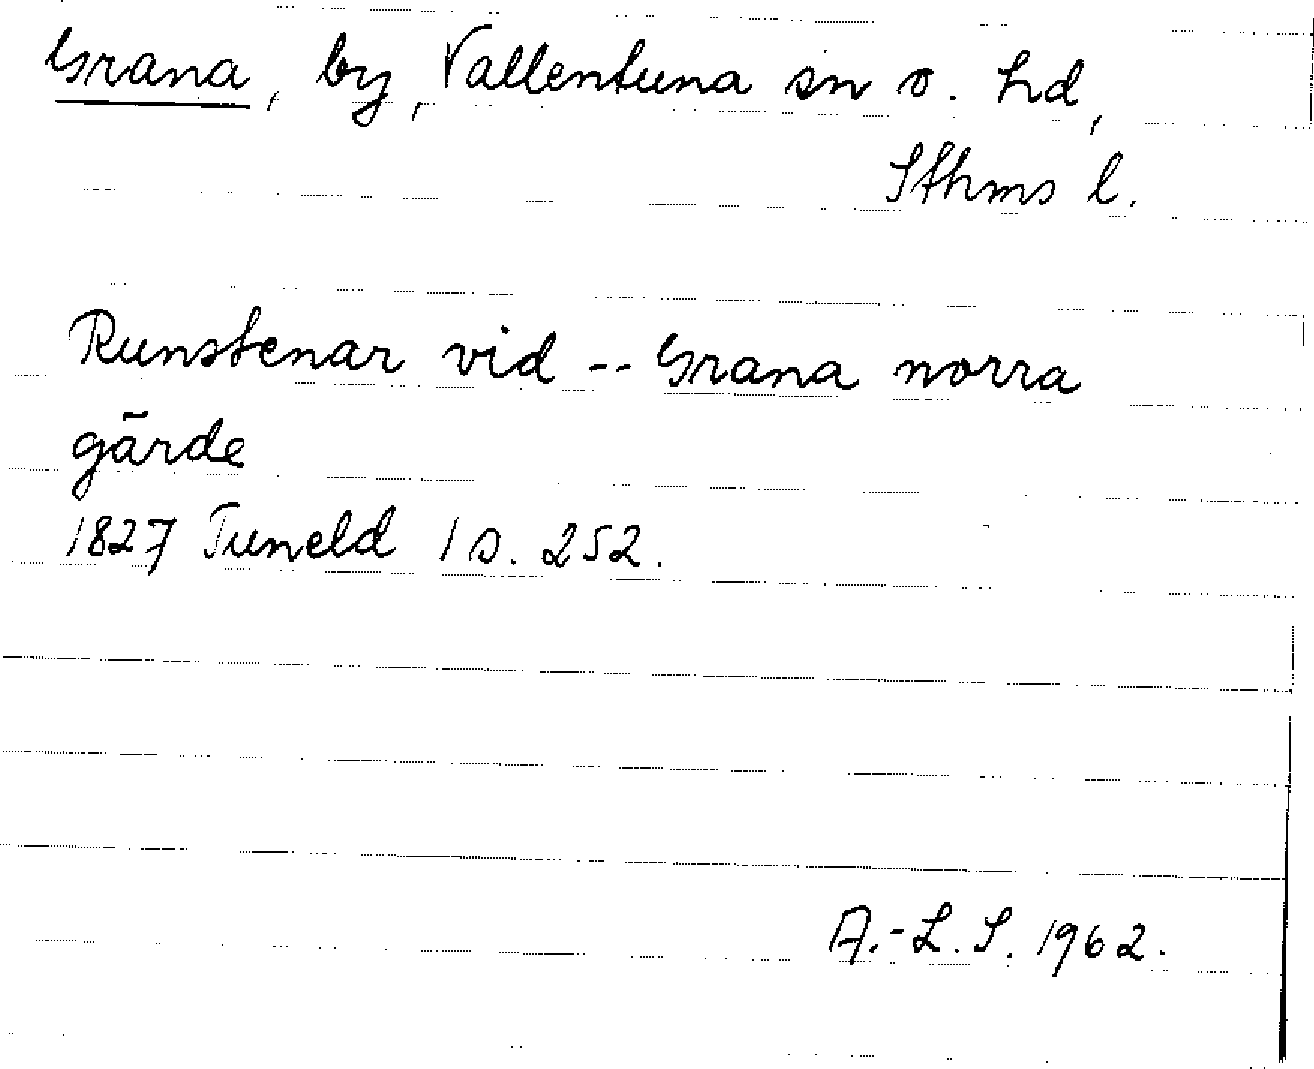 Grana, by, Vallentuna sn o. hd,
Sthms l.
Runstenar vid -- Grana norra
gärde
1827 Tuneld 1 s. 252.
A.-L. S. 1962.